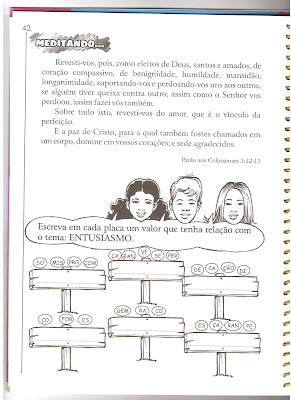 42
MEDITANDO...
Revesti-vos, pois, como eleitos de Deus, santos e amados, de
coração compassivo, de benignidade, humildade, mansidão,
longanimidade, suportando-vos e perdoando-vos uns aos outros,
se alguém tiver queixa contra outro; assim como o Senhor vos
perdoou, assim fazei vós também.
Sobre tudo isto, revesti-vos do amor, que é o vínculo da
perfeição.
E a paz de Cristo, para a qual também fostes chamados em
um corpo, domine em vossos corações; e sede agradecidos.
Paulo aos Colossenses 3:12-13
Escreva em cada placa um valor que tenha relação com
o tema: ENTUSIASMO.
SO MIS PRO COM
ÇA RAN VE SE PER
DE CA ÇÃO DI
ÇO FOR ES
GEM RA CO
ES ÇA RAN PE